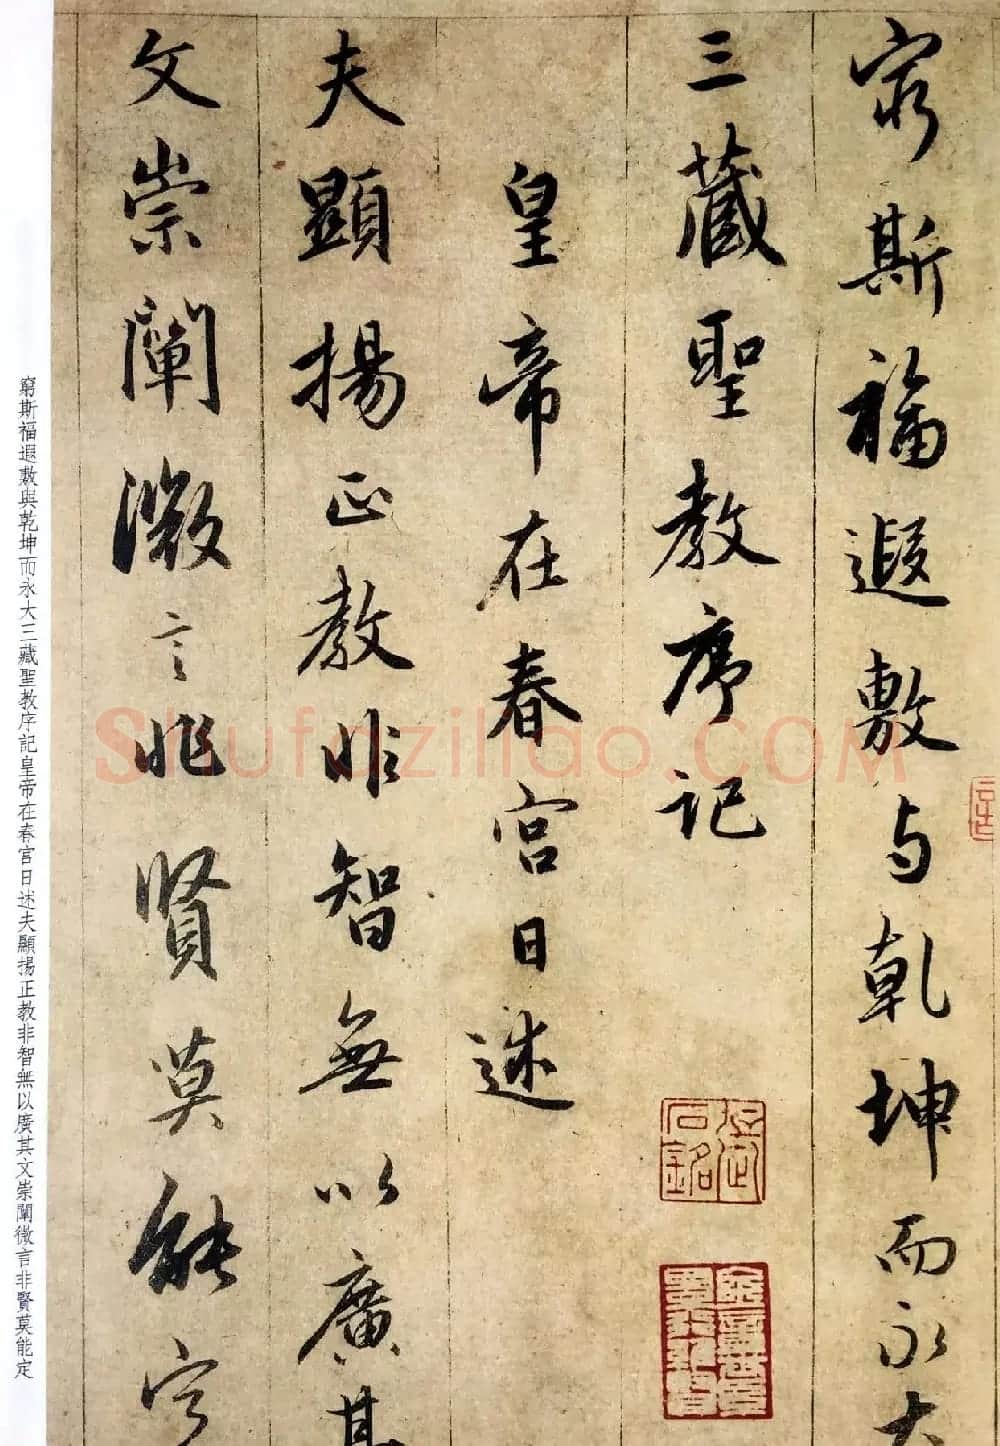 窮斯福遐敷与乾坤而永大
三藏聖教序記
皇帝在春宮日述
夫顯揚正教非智無以廣其
文崇闡微言非賢莫能定
窮斯福遐敷與乾坤而永大三藏聖教序記皇帝在春宮日述夫顯揚正教非智無以廣其文崇闡微言非賢莫能定
Shufaziliao.COM